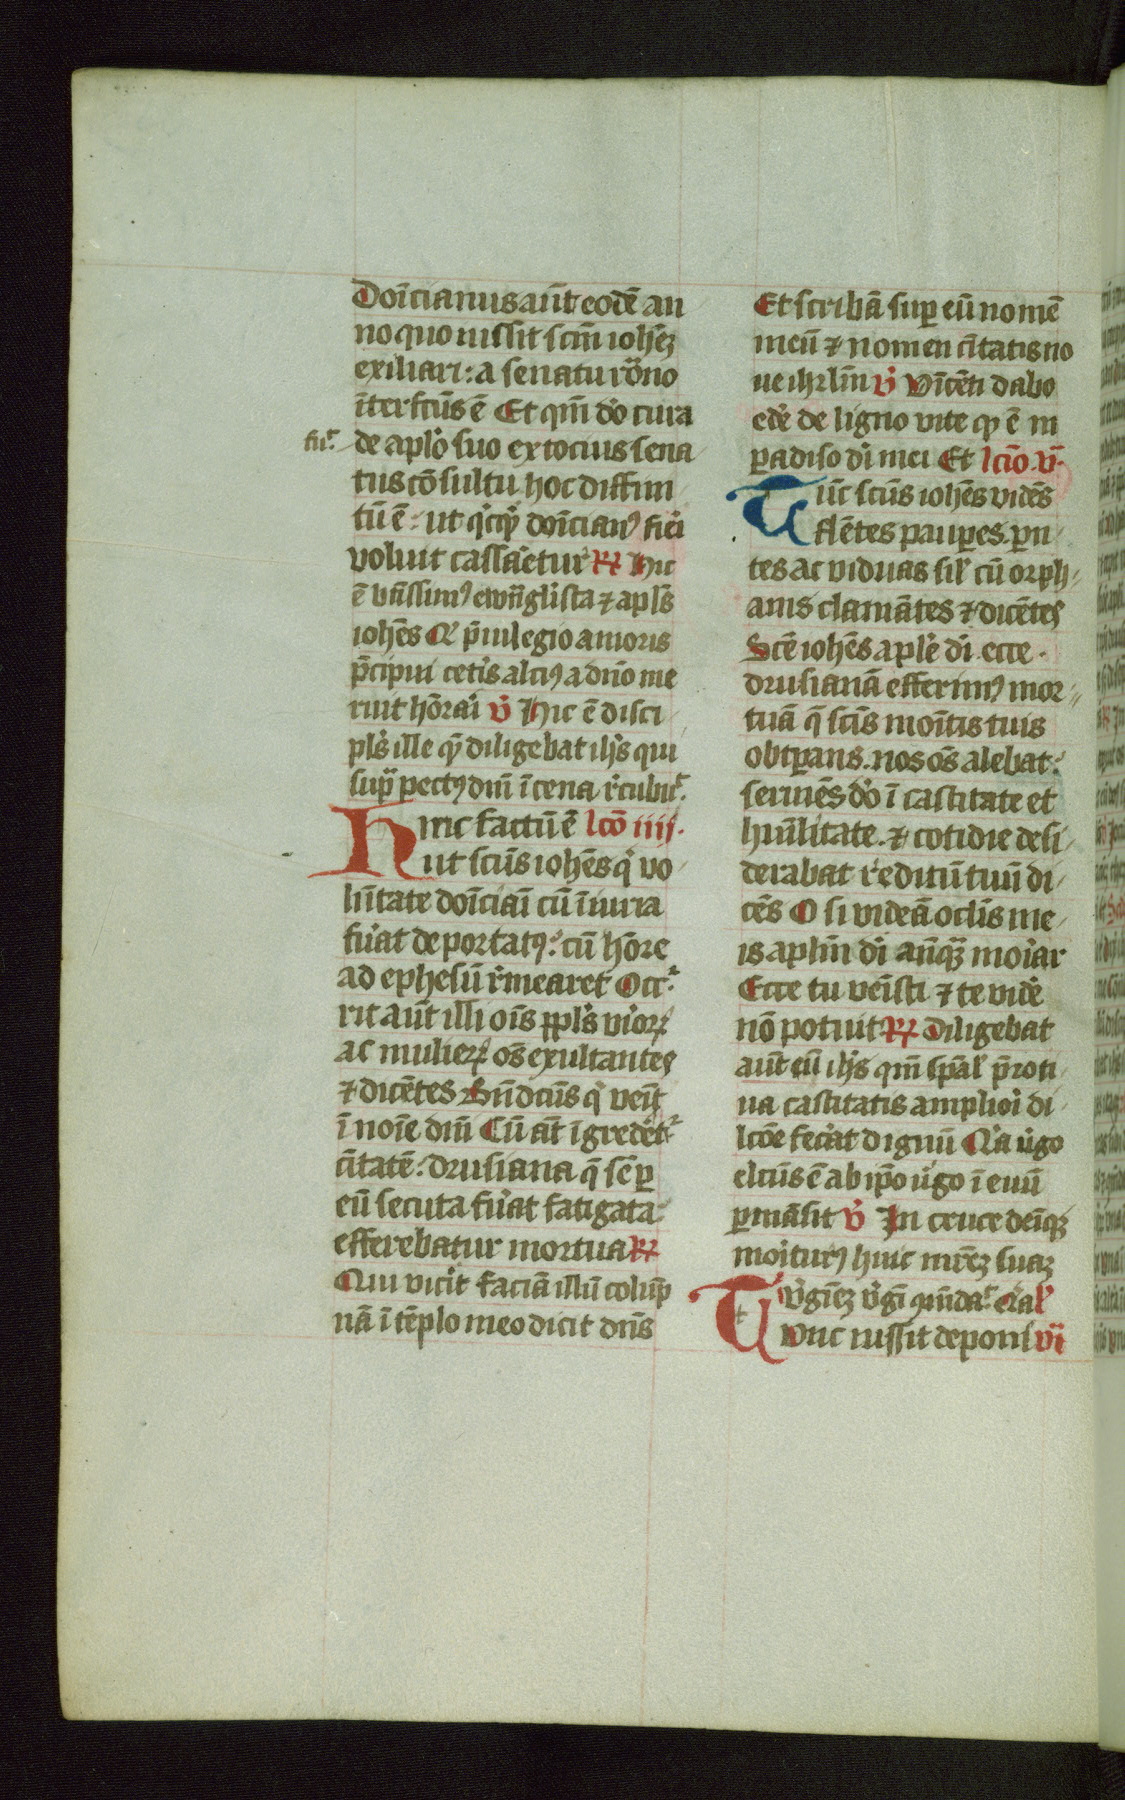 Doīcianus aūt eodē an
no quo iussit scm̄ ioh̄ez
exiliari: a senatu rōno
īterfcūs ē Et qm̄ do cura
fuit de aplo suo ex tocius sena
tus cōsultu hoc diffini
tū ē: ut qcqd doīcianꝰ fieri
voluit cassaretur ℟ Hic
ē btissimꝰ ewāglista ⁊ apls
iohēs Qi pͥuilegio amoris
pͤcipui ceteris alciꝰ a dn̄o me
ruit hōrari ℣ Hic ē disci
pls ille quē diligebat ihs qui
supra pectꝰ dn̄i ī cena rcubuit
Hinc factū ē lcō iiij.
ut scūs iohēs qi vo
lūtate doīciaī cū īiuria
fuerat deportatꝰ: cū hōre
ad ephesū rmearet Occr
rit aūt illi oīs ppls viroꝝ
ac mulierꝝ os exultantes
⁊ dicētes Bn̄dcūs qi venit
ī noīe dn̄i Cū aūt īgredet
citatē: drusiana q̄ sēp
eū secuta fuerat fatigata
efferebatur mortua ℟
Qui vicit faciā illū colūp
nā ī tēplo meo dicit dn̄s
Et scribā super eū nomē
meū ⁊ nomen citatis no
ue ihrlm̄ ℣ Vīcēti dabo
edē de ligno vite qd ē in
padiso di mei Et lcīo v̄
Tūc scūs iohēs vidēs
flētes paupes. pn
tes ac viduas sil cū orph
anis clamātes ⁊ dicētes
Scē iohēs aplē di ecce
drusianā efferimꝰ mor
tuā q̄ scīs moītis tuis
obtpans. nos os alebat:
seruiēs do ī castitate et
humilitate. ⁊ cotidie desi
derabat reditū tuū di
cēs O si videā oclis me
is aplm̄ di an̄q̄ moriar
Ecce tu venisti ⁊ te vidē
nō potuit ℟ Diligebat
aūt eū ihs qm̄ spāl prōti
ua castitatis ampliori di
lcōe fecat dignū Qia virgo
elcūs ē ab ipo virgo ī euū
pmāsit ℣ In cruce deniqꝫ
moiturꝰ huic mrēz suaz
virgiēz virgi qm̄da. Qal
Tunc iussit deponi vi